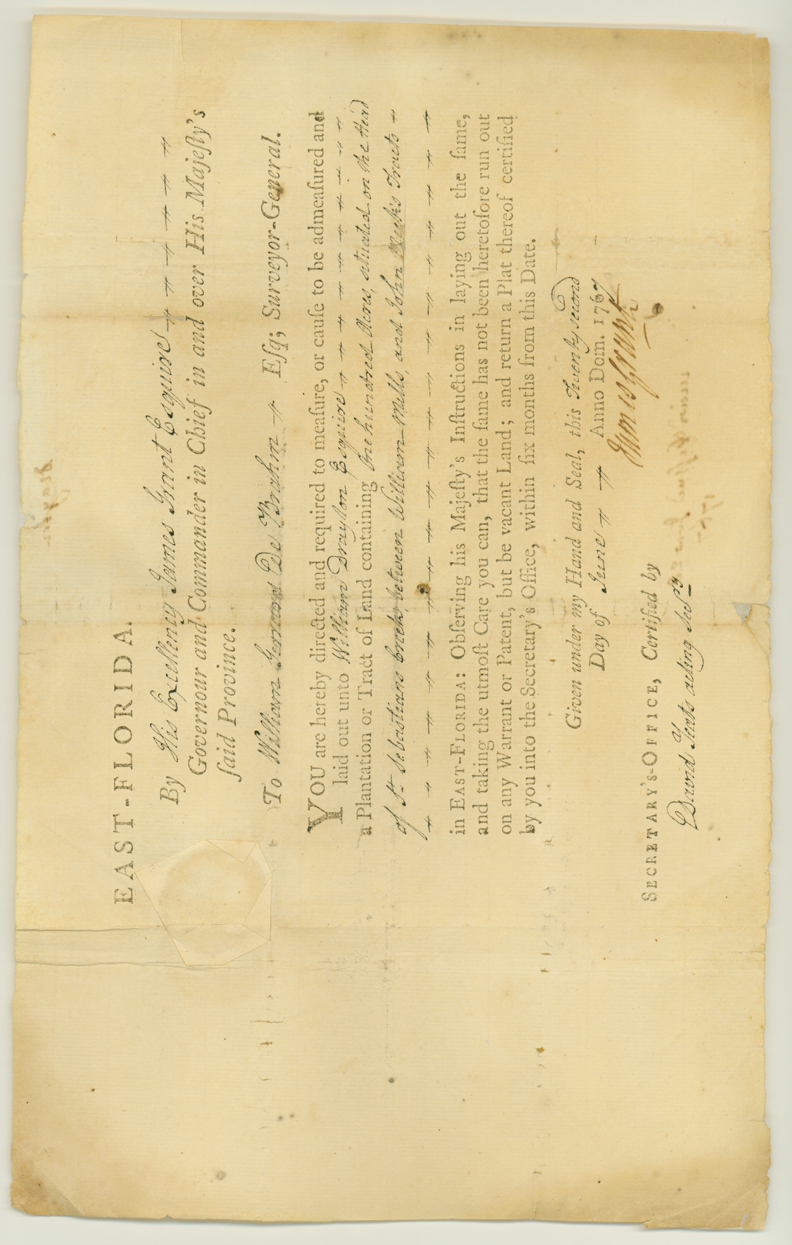 EAST-FLORIDA.
By His Excellency James Grant Esquire
Governour and Commander in Chief in and over His Majeſty's
ſaid Province.
To William Gerrard De Brahm Eſq; Surveyor-General.
YOU are hereby directed and required to meaſure, or cauſe to be admeaſured and
laid out unto William Drayton Esquire
a Plantation or Tract of Land containing One hundred Acres, situated on the Head
of St. Sebastians Creek, between William Mills, and John Meek's Tracts
in EAST-FLORIDA: Obſerving his Majeſty's Inſtructions in laying out the ſame,
and taking the utmoſt Care you can, that the ſame has not been heretofore run out
on any Warrant or Patent, but be vacant Land; and return a Plat thereof certified
by you into the Secretary's Office, within ſix months from this Date.
Given under my Hand and Seal, this Twenty second
Day of June Anno Dom. 1767
James Grant
SECRETARY'S-OFFICE, Certified by
David Yeats acting Secry.